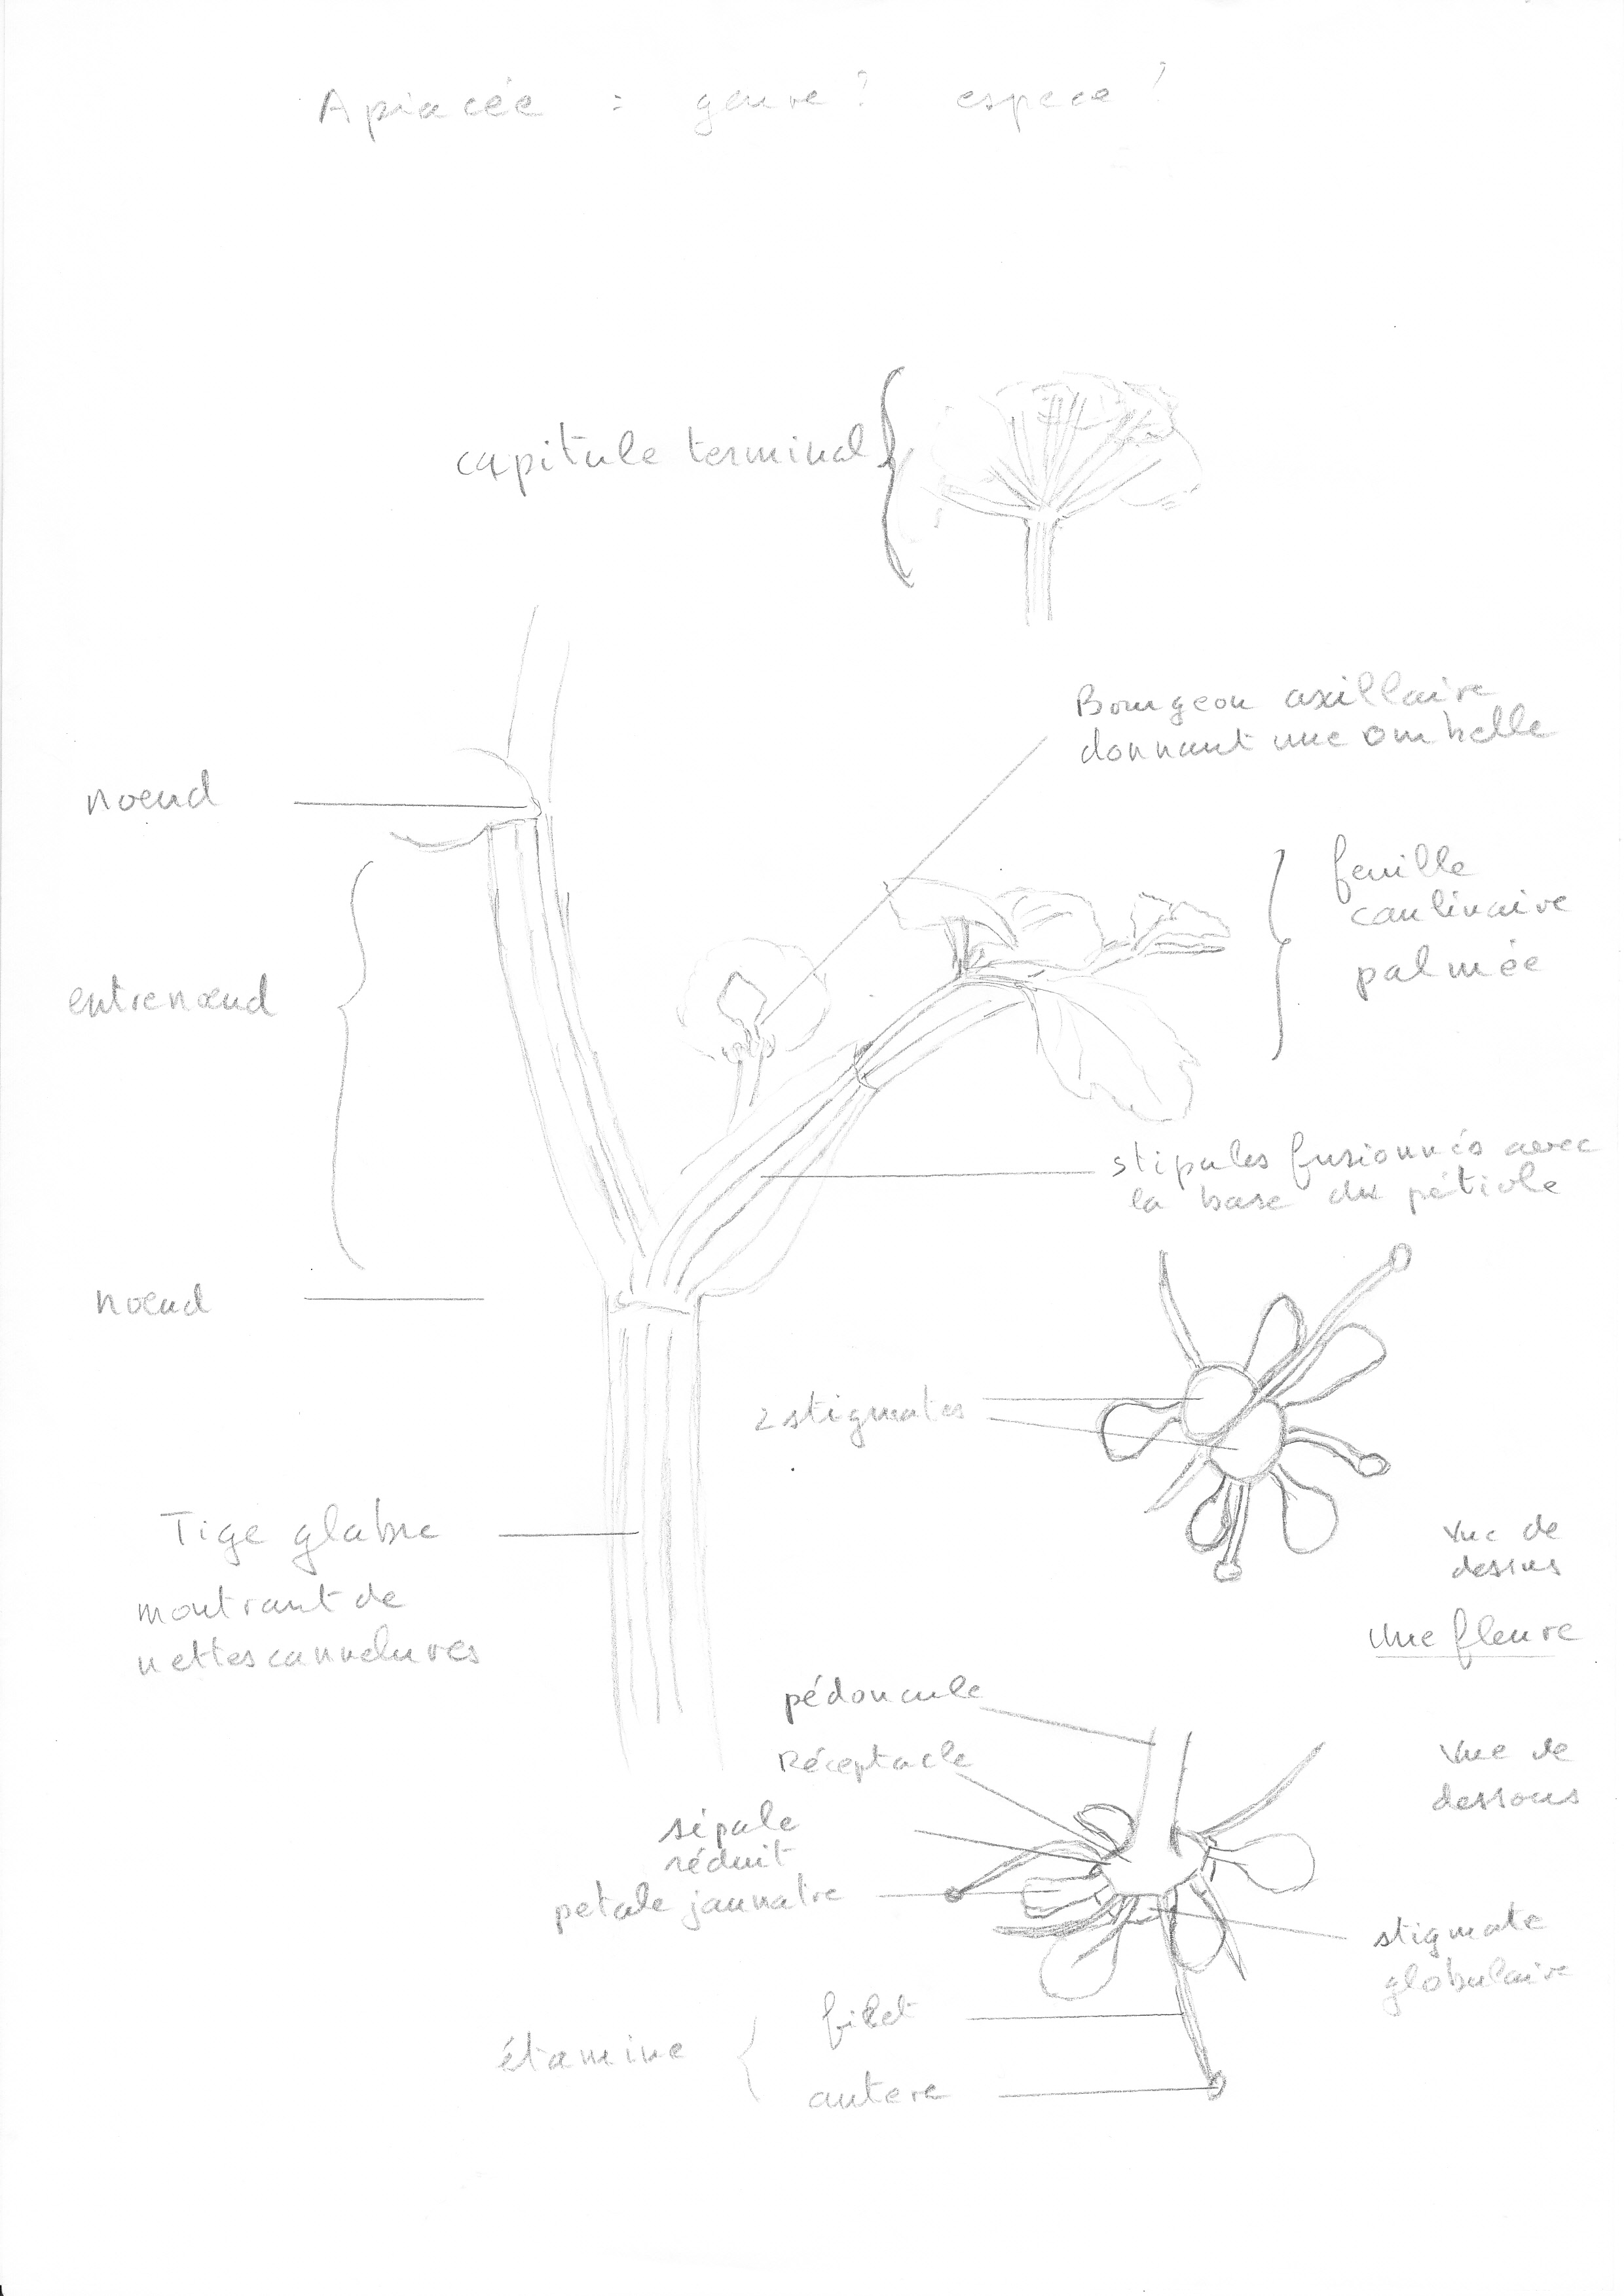 Apiacée : genre ? espece ?
capitule terminal
Bourgeon axillaire
donnant une ombelle
noeud
feuille
caulinaire
palmée
entrenoeud
stipules fusionnés avec
la base du pétiole
noeud
2 stigmates
Tige glabre
montrant de
nettes cannelures
vue de
dessus
une fleure
pédoncule
Réceptacle
vue de
dessous
sépale
réduit
petale jaunatre
stigmate
globulaire
filet
étamine
antere